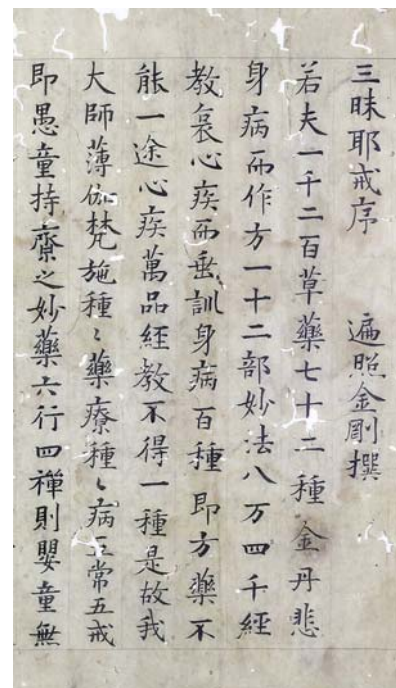 三昧耶戒序 遍照金剛撰
若夫一千二百草藥七十二種金丹悲
身病而作方一十二部妙法八万四千經
教哀心疾而垂訓身病百種即方藥不
能一途心疾萬品經教不得一種是故我
大師薄伽梵施種〻藥療種〻病五常五戒
即愚童持齋之妙藥六行四禪則嬰童無